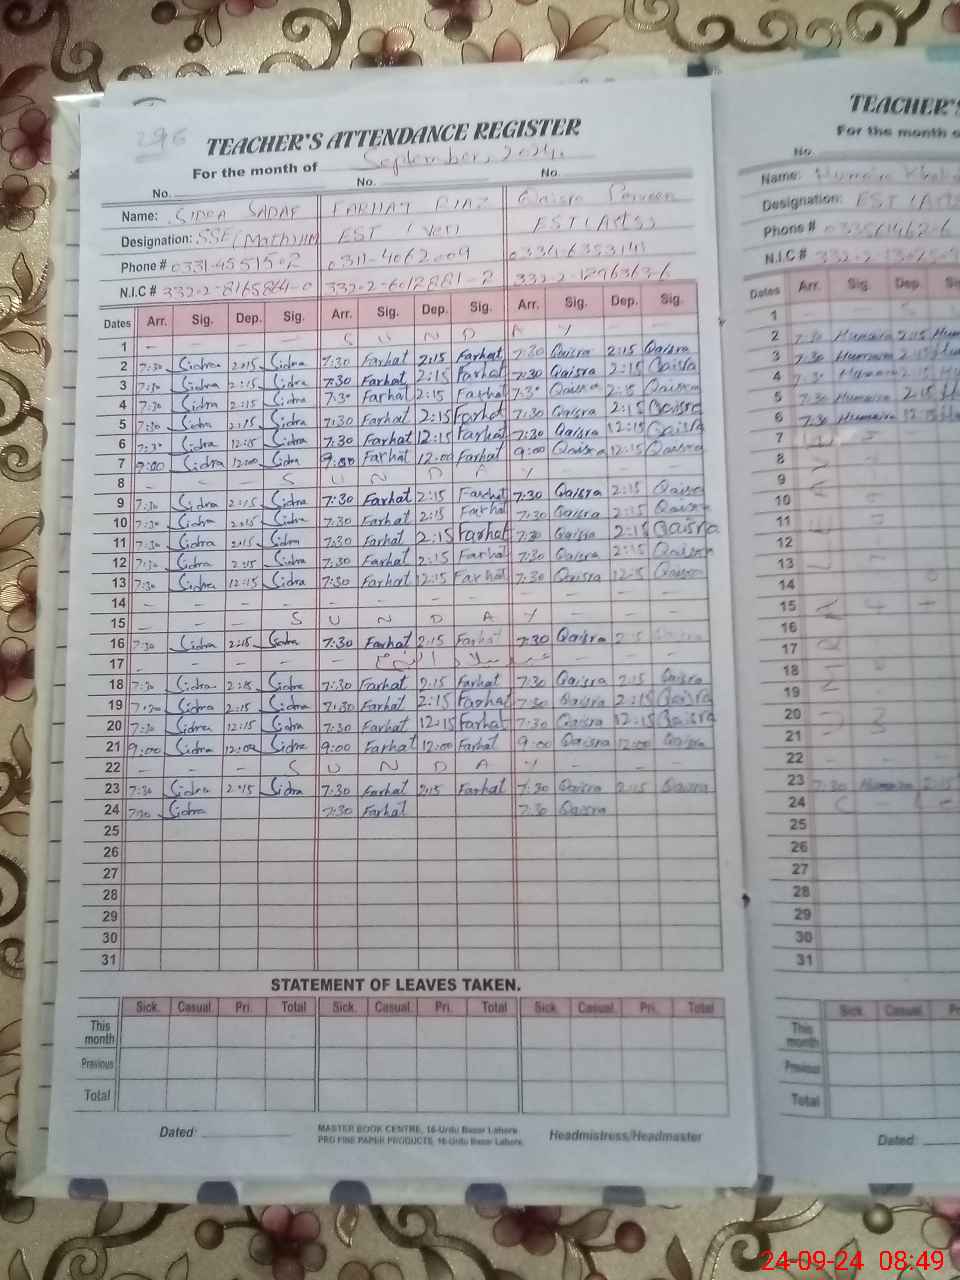 296
TEACHER'S ATTENDANCE REGISTER
For the month of September, 2024.
No. No. No.
Name: SIDRA SADAF FARHAT RIAZ Qaisra Perveen
Designation: SSE (Math) EST (Ver) EST (Arts)
Phone # 0331-4551502 0311-4062009 0334-6353141
N.I.C # 332-2-8165864-0 332-2-6012881-2 332-2-1296363-6
Dates Arr. Sig. Dep. Sig. Arr. Sig. Dep. Sig. Arr. Sig. Dep. Sig.
1 - - - - S U N D A Y - -
2 7:30 Sidra 2:15 Sidra 7:30 Farhat 2:15 Farhat 7:30 Qaisra 2:15 Qaisra
3 7:30 Sidra 2:15 Sidra 7:30 Farhat 2:15 Farhat 7:30 Qaisra 2:15 Qaisra
4 7:30 Sidra 2:15 Sidra 7:30 Farhat 2:15 Farhat 7:30 Qaisra 2:15 Qaisra
5 7:30 Sidra 2:15 Sidra 7:30 Farhat 2:15 Farhat 7:30 Qaisra 2:15 Qaisra
6 7:30 Sidra 12:15 Sidra 7:30 Farhat 12:15 Farhat 7:30 Qaisra 12:15 Qaisra
7 9:00 Sidra 12:00 Sidra 9:00 Farhat 12:00 Farhat 9:00 Qaisra 12:15 Qaisra
8 - - - S U N D A Y - - -
9 7:30 Sidra 2:15 Sidra 7:30 Farhat 2:15 Farhat 7:30 Qaisra 2:15 Qaisra
10 7:30 Sidra 2:15 Sidra 7:30 Farhat 2:15 Farhat 7:30 Qaisra 2:15 Qaisra
11 7:30 Sidra 2:15 Sidra 7:30 Farhat 2:15 Farhat 7:30 Qaisra 2:15 Qaisra
12 7:30 Sidra 2:15 Sidra 7:30 Farhat 2:15 Farhat 7:30 Qaisra 2:15 Qaisra
13 7:30 Sidra 12:15 Sidra 7:30 Farhat 12:15 Farhat 7:30 Qaisra 12:15 Qaisra
14 - - - - - - - - - - - -
15 - - - S U N D A Y - - -
16 7:30 Sidra 2:15 Sidra 7:30 Farhat 2:15 Farhat 7:30 Qaisra 2:15
17 - - - - - عید میلاد النبی - - -
18 7:30 Sidra 2:15 Sidra 7:30 Farhat 2:15 Farhat 7:30 Qaisra 2:15 Qaisra
19 7:30 Sidra 2:15 Sidra 7:30 Farhat 2:15 Farhat 7:30 Qaisra 2:15 Qaisra
20 7:30 Sidra 12:15 Sidra 7:30 Farhat 12:15 Farhat 7:30 Qaisra 12:15 Qaisra
21 9:00 Sidra 12:00 Sidra 9:00 Farhat 12:00 Farhat 9:00 Qaisra 12:00 Qaisra
22 - - - S U N D A Y - - -
23 7:30 Sidra 2:15 Sidra 7:30 Farhat 2:15 Farhat 7:30 Qaisra 2:15 Qaisra
24 7:30 Sidra 7:30 Farhat 7:30 Qaisra
25
26
27
28
29
30
31
STATEMENT OF LEAVES TAKEN.
Sick. Casual. Pri. Total Sick. Casual. Pri. Total Sick. Casual. Pri. Total
This month
Previous
Total
Dated:
MASTER BOOK CENTRE, 16-Urdu Bazar Lahore.
PRO FINE PAPER PRODUCTS, 16-Urdu Bazar Lahore.
Headmistress/Headmaster
TEACHER'S
For the month o
No.
Name: Humaira
Designation: EST (Arts
Phone #
N.I.C #
Dates Arr. Sig. Dep.
1
2 7:30 Humaira 2:15
3 7:30 Humaira 2:15
4 7:30 Humaira 2:15
5 7:30 Humaira 2:15
6 7:30 Humaira 12:15
7
8
9
10
11
12
13
14
15
16
17
18
19
20
21
22
23 7:30 Humaira 2:15
24
25
26
27
28
29
30
31
Sick. Casual.
This month
Previous
Total
Dated:
24-09-24 08:49